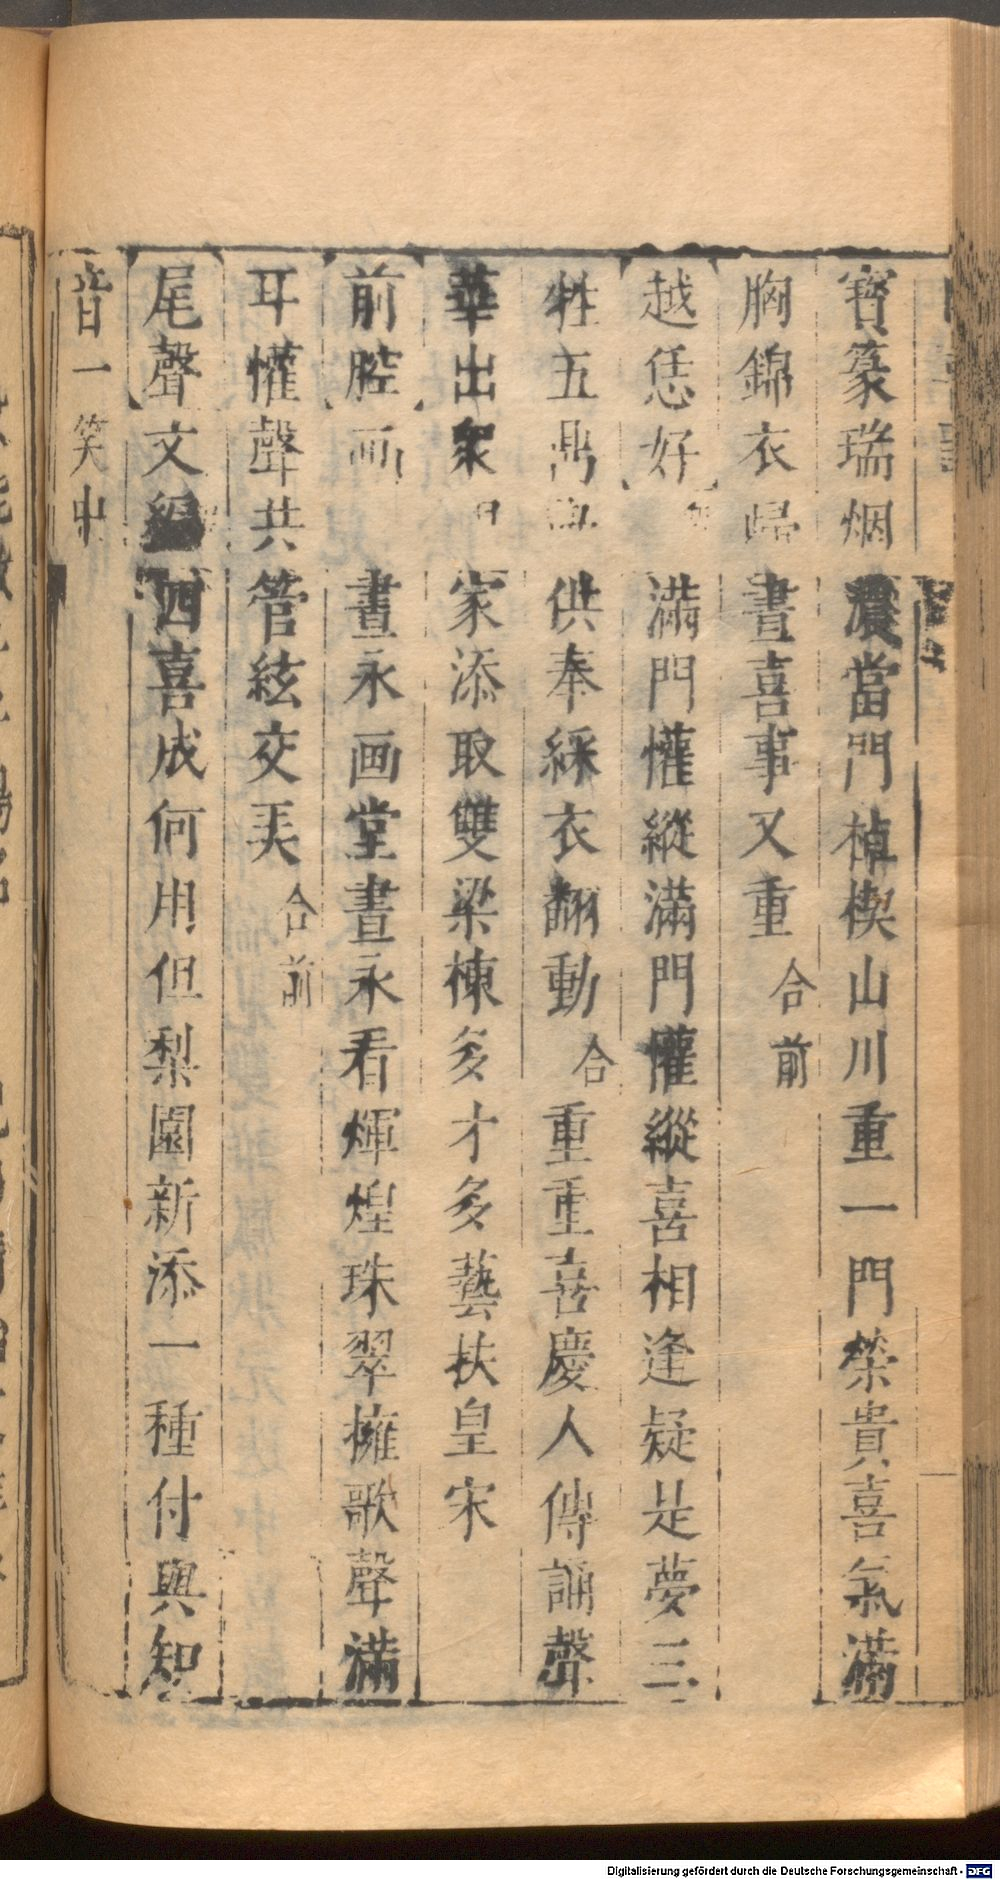 寶篆瑞烟濃當門棹楔山川重一門榮貴喜氣滿
胸錦衣歸晝喜事又重 合前
越恁好 滿門懽縱滿門懽縱喜相逢疑是夢三
牲五鼎 供奉綵衣翻動 合 重重喜慶人傳誦聲
華出衆 家添取雙梁棟多才多藝扶皇宋
前腔 画 晝永画堂晝永看輝煌珠翠擁歌聲滿
耳懽聲共管絃交美 合前
尾聲 文 四喜成何用但梨園新添一種付與知
音一笑中
Digitalisierung gefördert durch die Deutsche Forschungsgemeinschaft - DFG